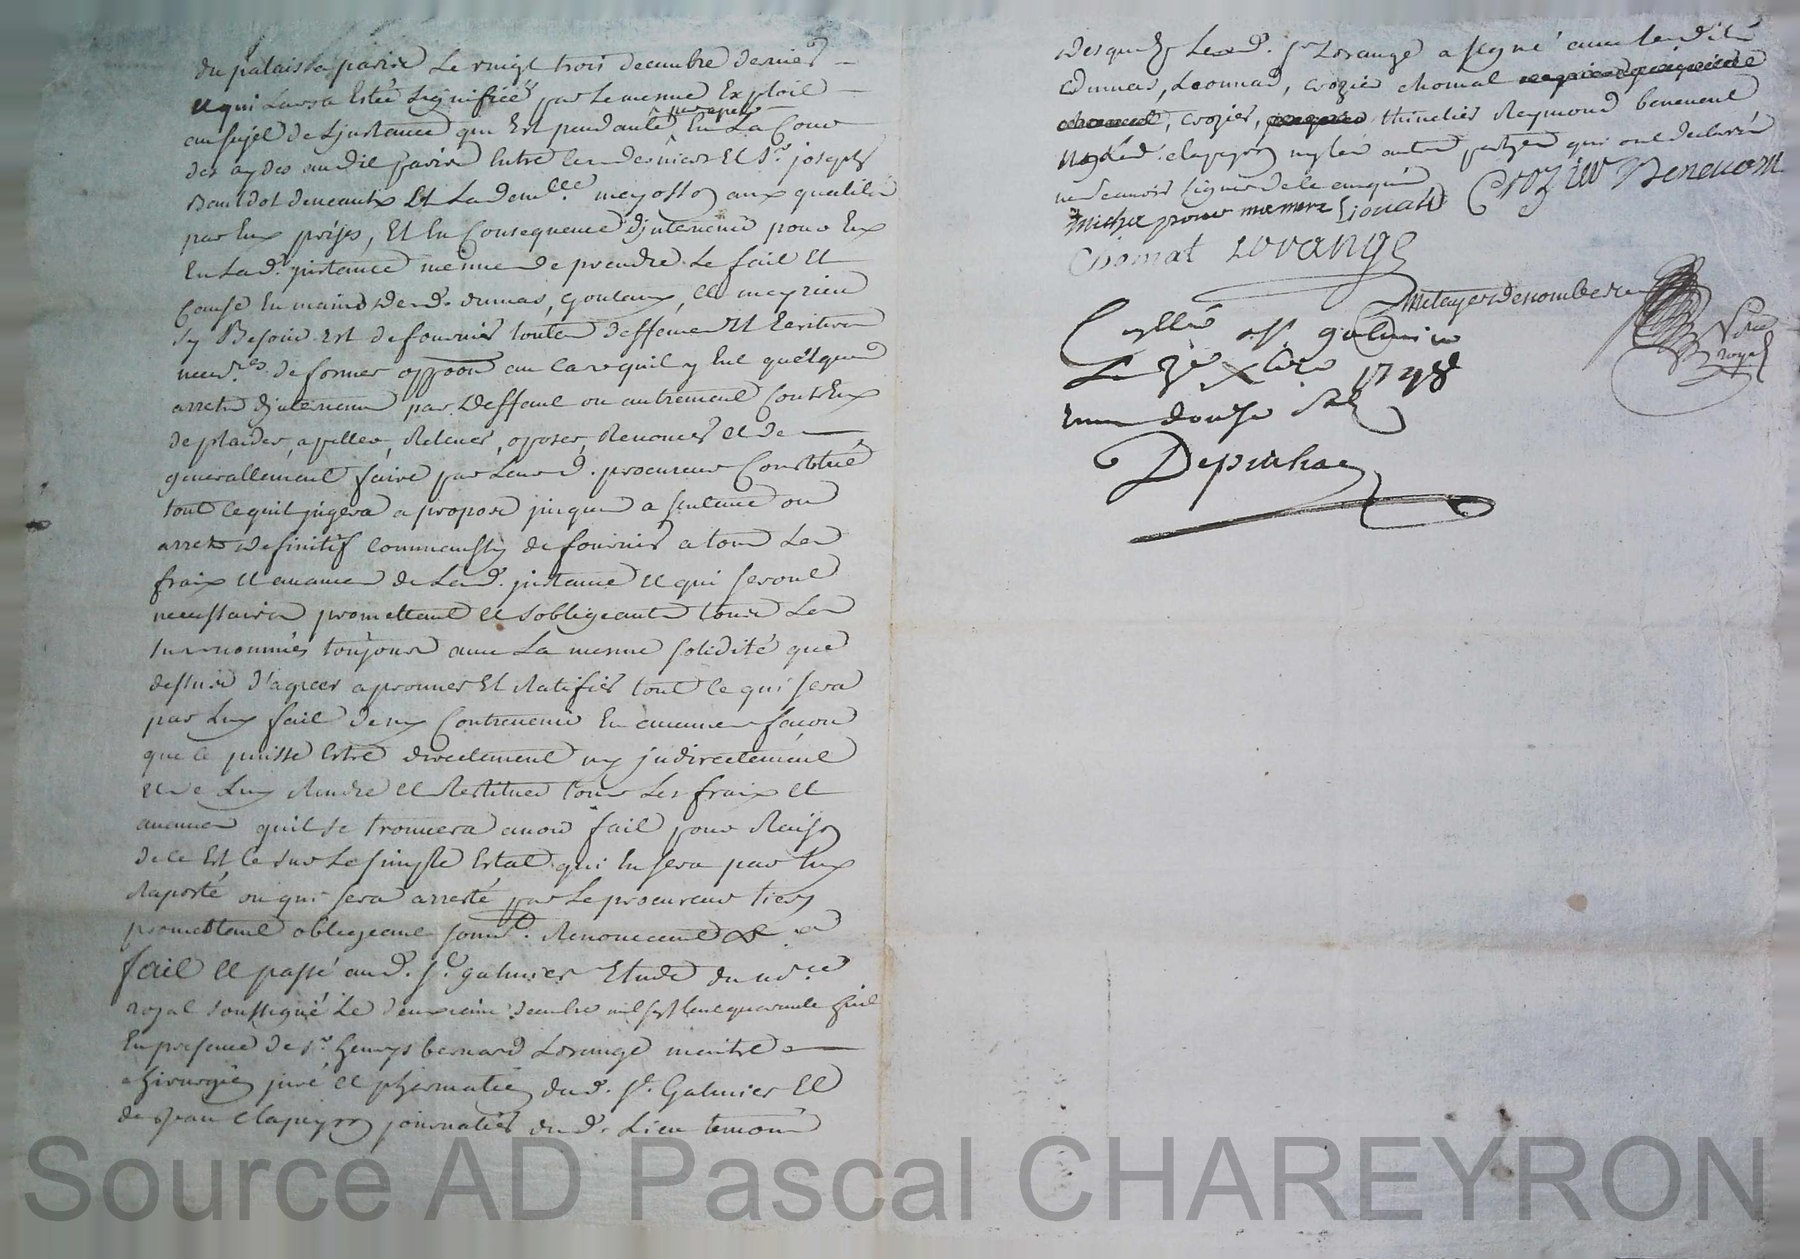 du palais a paris le vingt trois decembre dernier
et qui Leura Esté signiffiée par le mesme Exploit
au sujet de Linstance qui Est pendante sur apel En La Cour
des aydes audit paris Entre les dernier et Sr. joseph
Baudot deneaux Et La demlle. meyosson aux qualités
par Eux prises, Et En Consequence d'jntervenir pour Eux
En Lad. jnstance mesme de prendre Le fait Et
Cause En main desd. dumas, goutaux, et meyrieu
sy Besoin Est de fournir toutes deffences Et Ecritures
necdres. de former oppoon au cas quil y Eut quelques
arrets d'jntervenus par deffaut ou autrement Contr'Eux
de plaider, apeller, Relever, oposer, Renoncer et de
generallement faire par Leurd. procureur Constitué
tout Ce quil jugera a propos jusques a sentence ou
arrets definitif comm'aussy de fournir a tous Les
fraix et avances de Lad. jnstance et qui seront
necessaires promettant et s'obligeants tous Les
surnommés toujours avec La mesme solidité que
dessus d'agreer aprouver Et Ratifier tout Ce qui sera
par Luy fait de ny Contrevenir En aucunes façon
que Ce puisse Estre directement ny jndirectement
et de Luy Rendre et Restituer tous Les fraix et
avances quil se trouvera avoir fait pour Raison
de ce Est ce sur Le simple Estat qui En sera par Luy
Raporté ou qui sera arresté par Le procureur tiers
promettant obligeant soumt. Renonceant &a
fait et passé aud. St. galmier Etude du nore
royal soussigné Le deuxieme decembre mil sept cent quarante huit
En presence de Sr. henrys bernard Lorange maitre
chirurgien juré et pharmatien dud. St. Galmier Et
de Jean Clapeyron journalier dud. Lieu temoins
desquels Led. Sr Lorange a signé avec lesdits
dumas, Leonnas, crozier chomat
, crozier, thinelier Reymond benevent
clapeyron autres parties qui ont declarés
ne scavoir signer de ce enquis Crozier Benevent
micha pour ma mere
Chomat Lorange
Metayer Denombere
Nore royal
Cyllé a St galmier
Le 3e Xbre 1748
Reçu douse sols
Depuihac
Source AD Pascal CHAREYRON